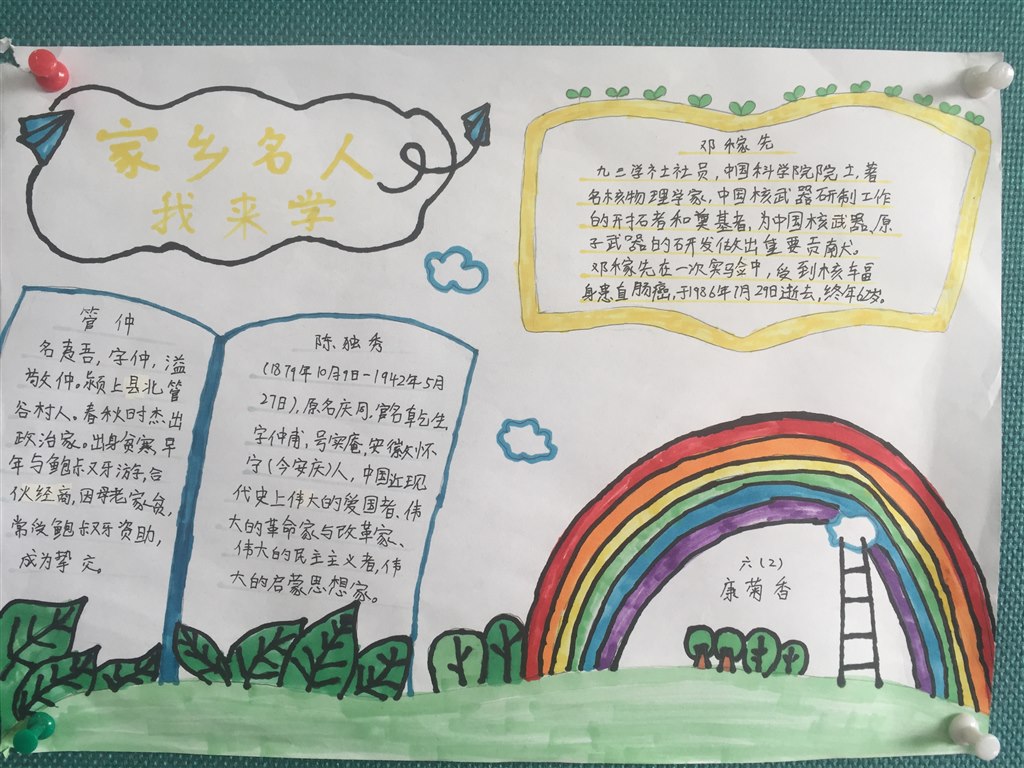 家乡名人
我来学
邓稼先
九三学社社员,中国科学院院士,著
名核物理学家,中国核武器研制工作
的开拓者和奠基者,为中国核武器、原
子武器的研发做出重要贡献。
邓稼先在一次实验中,受到核辐
身患直肠癌,于1986年7月29日逝去,终年62岁。
管仲
名夷吾,字仲,溢
敬仲。颍上县北管
谷村人。春秋时杰出
政治家。出身贫寒,早
年与鲍叔牙游,合
伙经商,因母老家贫,
常受鲍叔牙资助,
成为挚交。
陈独秀
(1879年10月9日-1942年5月
27日),原名庆同,官名乾生,
字仲甫,号实庵,安徽怀
宁(今安庆)人,中国近现
代史上伟大的爱国者、伟
大的革命家与改革家、
伟大的民主主义者,伟
大的启蒙思想家。
六(2)
康菊香